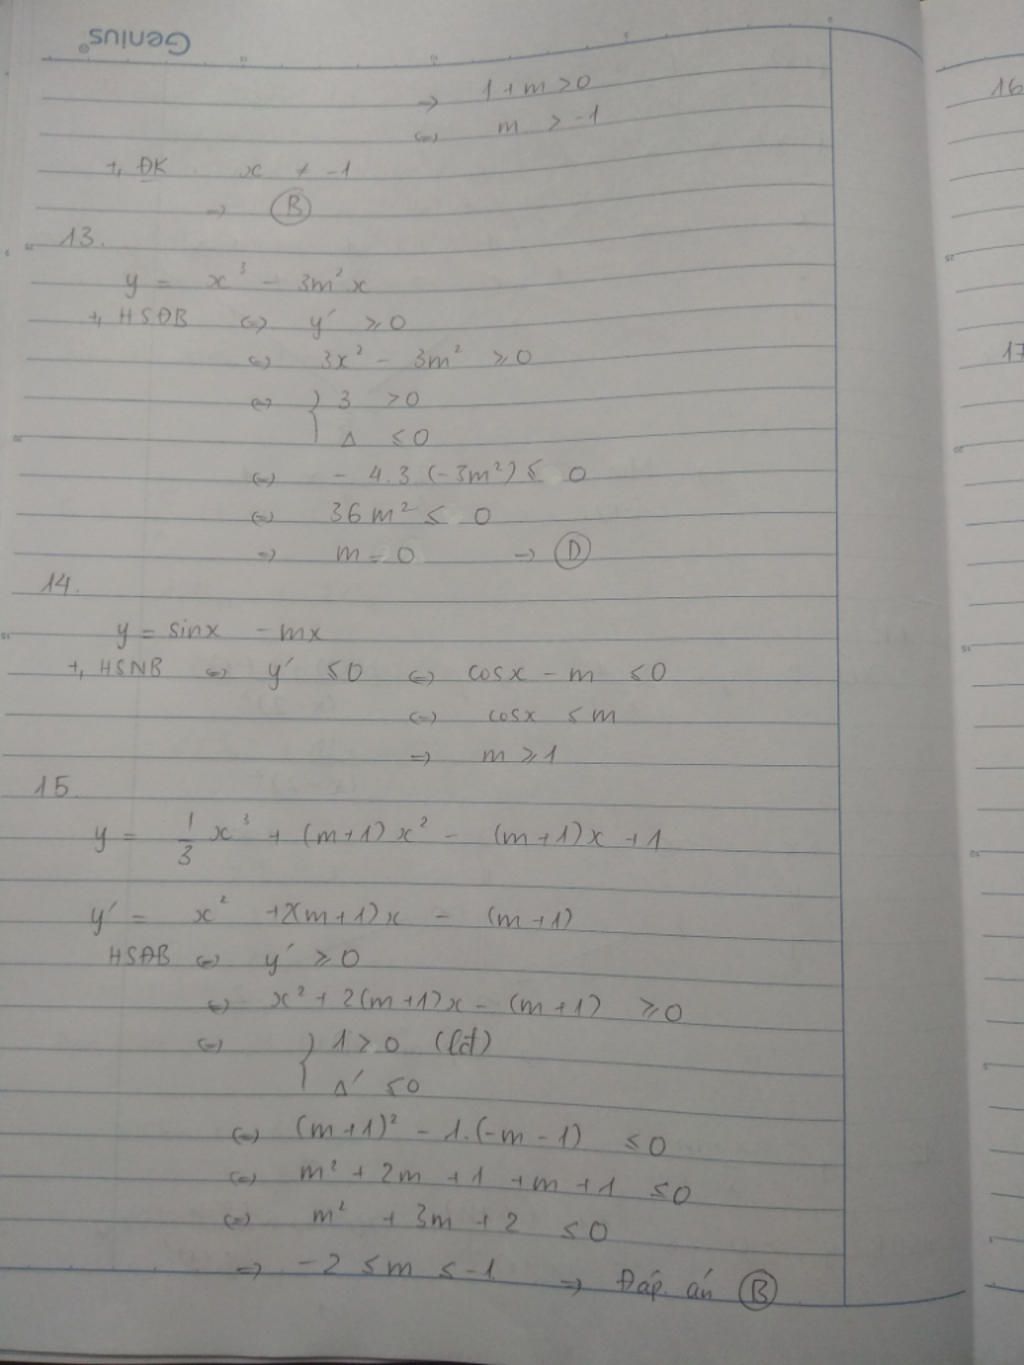 Genius®
=> 1+m > 0
<=> m > -1
+, ĐK x ≠ -1
=> B
16
13.
y = x³ - 3m²x
+, HSĐB <=> y' ≥ 0
<=> 3x² - 3m² ≥ 0
<=> { 3 > 0
Δ ≤ 0
17
<=> - 4.3 (-3m²) ≤ 0
<=> 36m² ≤ 0
=> m = 0 => D
14.
y = sinx - mx
+, HSNB <=> y' ≤ 0 <=> cosx - m ≤ 0
<=> cosx ≤ m
=> m ≥ 1
15
y = 1/3 x³ + (m+1)x² - (m+1)x + 1
y' = x² + 2(m+1)x - (m+1)
HSĐB <=> y' ≥ 0
<=> x² + 2(m+1)x - (m+1) ≥ 0
<=> { 1 > 0 (lđ)
Δ' ≤ 0
<=> (m+1)² - 1.(-m-1) ≤ 0
<=> m² + 2m + 1 + m + 1 ≤ 0
<=> m² + 3m + 2 ≤ 0
=> -2 ≤ m ≤ -1 => Đáp án B